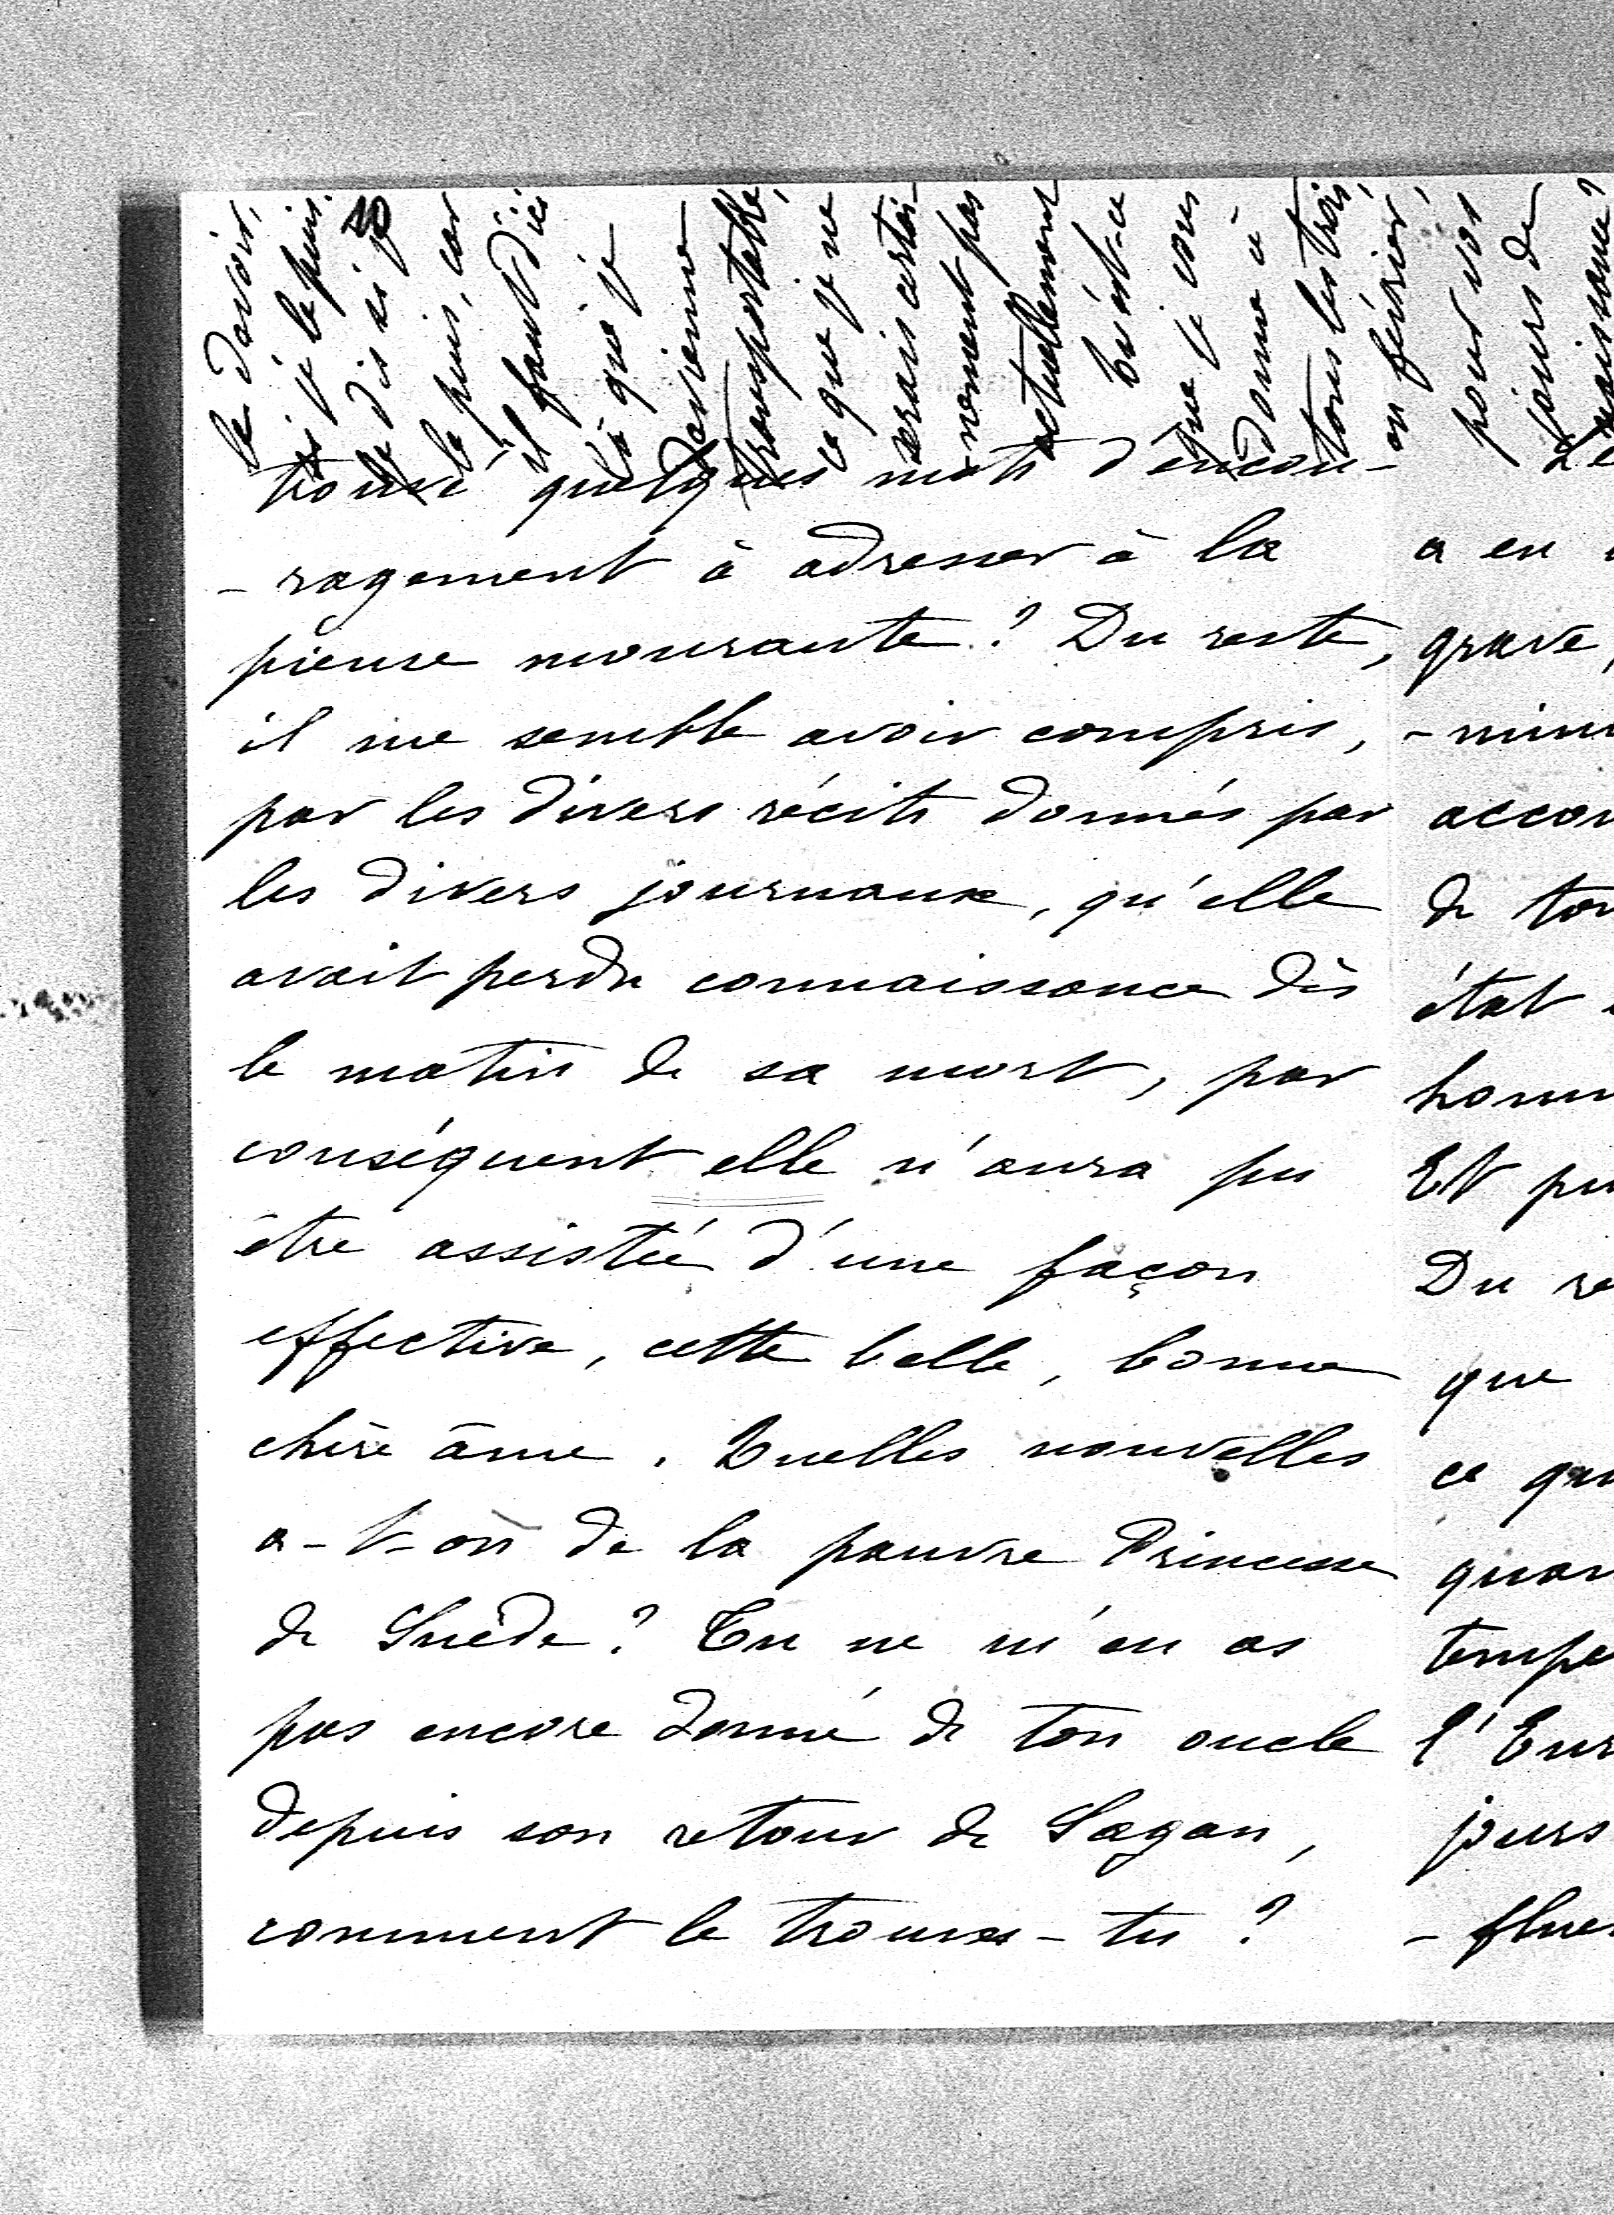 le devoir,
si je le puis.
Je dis si je
le puis, car
il faut d'ici
là que je
devienne
transportable,
ce que je ne
serais certai-
-nement pas
actuellement
Qu'est-ce
que je vous
donne à
tous les trois,
en février,
pour vos
jours de
naissance?
trouvé quelques mots d'encou-
-ragement à adresser à la
pieuse mourante? Du reste,
il me semble avoir compris,
par les divers récits donnés par
les divers journaux, qu'elle
avait perdu connaissance dès
le matin de sa mort, par
conséquent elle n'aura pu
être assistée d'une façon
effective, cette belle, bonne
chère âme. Quelles nouvelles
a-t-on de la pauvre Princesse
de Suède? Tu ne m'en as
pas encore donné de ton oncle
depuis son retour de Sagan,
comment le trouves-tu?
a eu
grave,
de
état
Et
Du
que
ce
jours